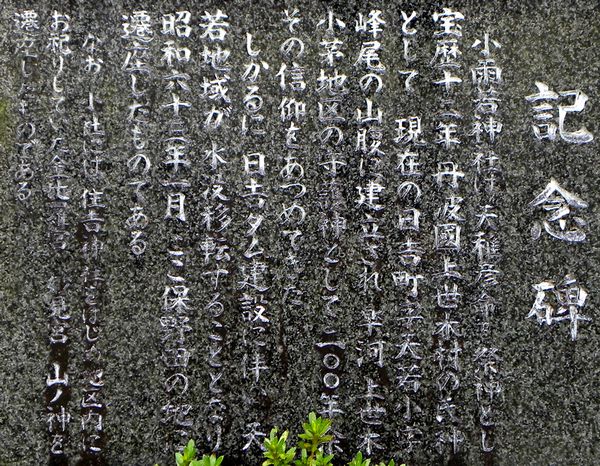 記念碑
小雨若神社は天稚彦命を祭神とし
宝歴十三年丹波國上世木村の氏神
として 現在の日吉町字天若小字
峰尾の山腹に建立され 上世木
小茅地区の守護神として二〇〇年来
その信仰をあつめてきた
しかるに日吉ダム建設に伴い 天
若地域が水没移転することとなり
昭和六十三年一月 ここ保野田の地に
遷座したものである
なお 上社には住吉神社をはじめ地区内に
お祀りしていた金比羅宮 妙見宮 山ノ神を
遷座したものである